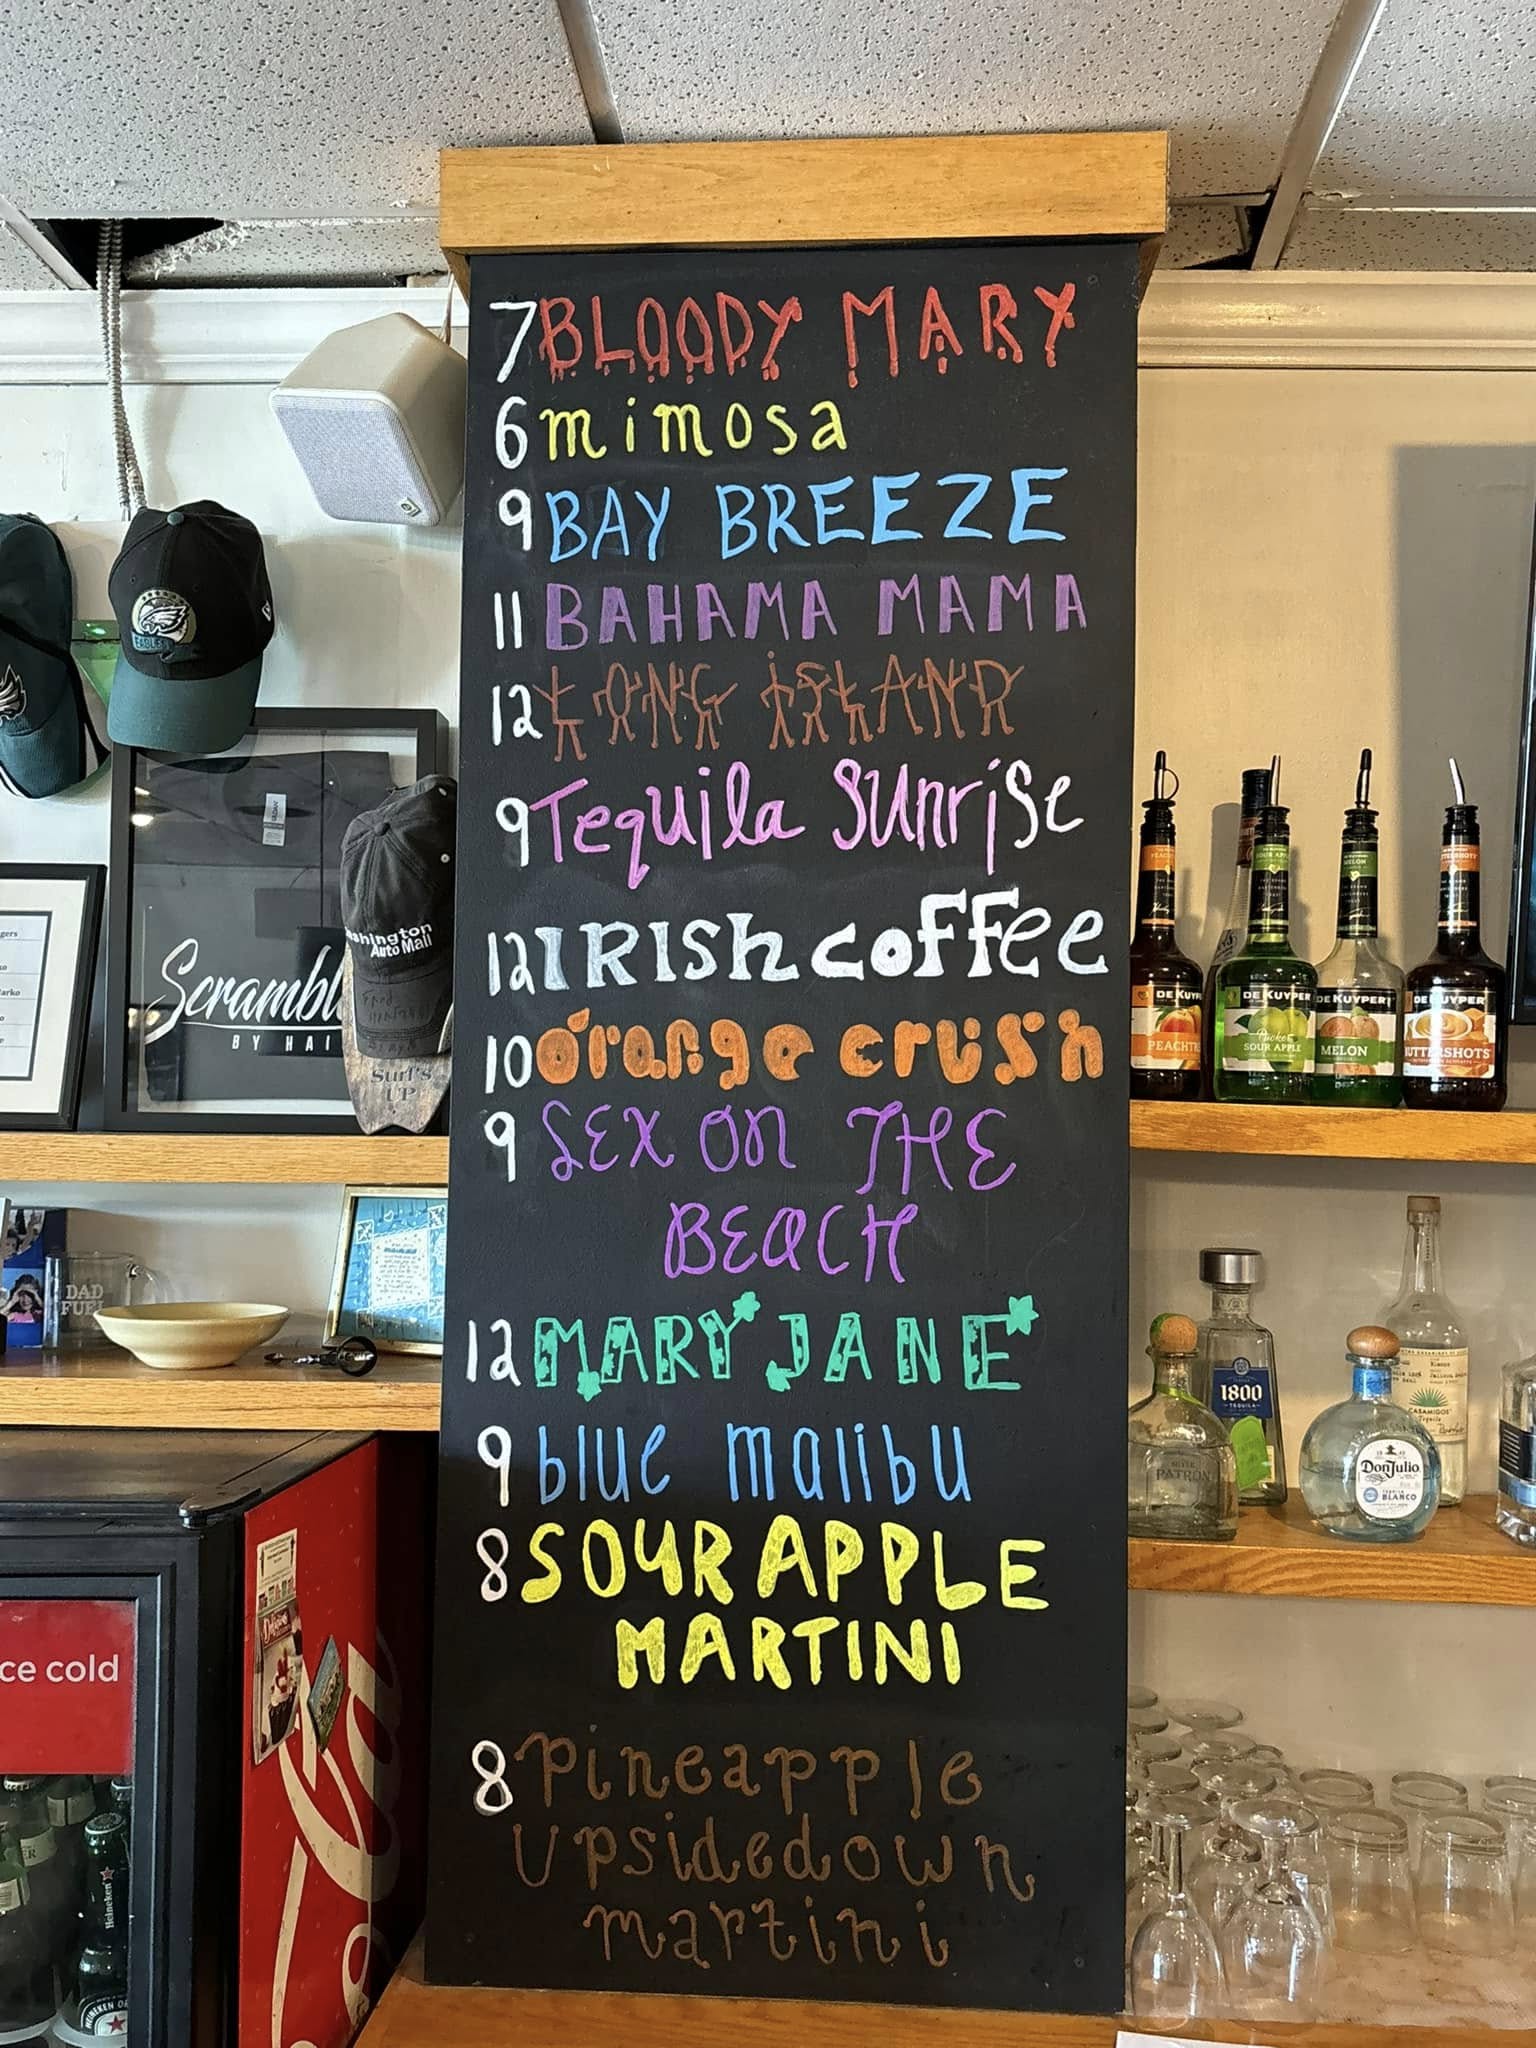 7 BLOODY MARY
6 mimosa
9 BAY BREEZE
11 BAHAMA MAMA
12 LONG ISLAND
9 Tequila Sunrise
12 IRISH COFFEE
10 orange crush
9 SEX ON THE
BEACH
12 MARY JANE
9 blue malibu
8 SOUR APPLE
MARTINI
8 Pineapple
Upsidedown
martini
EAGLES
Washington
Auto Mall
Surf's
UP
DAD
FUEL
ce cold
Heineken
DE KUYPER
DE KUYPER
Pucker
SOUR APPLE
DE KUYPER
MELON
DE KUYPER
BUTTERSHOTS
1800
TEQUILA
PATRON
Don Julio
BLANCO
CASAMIGOS
Tequila